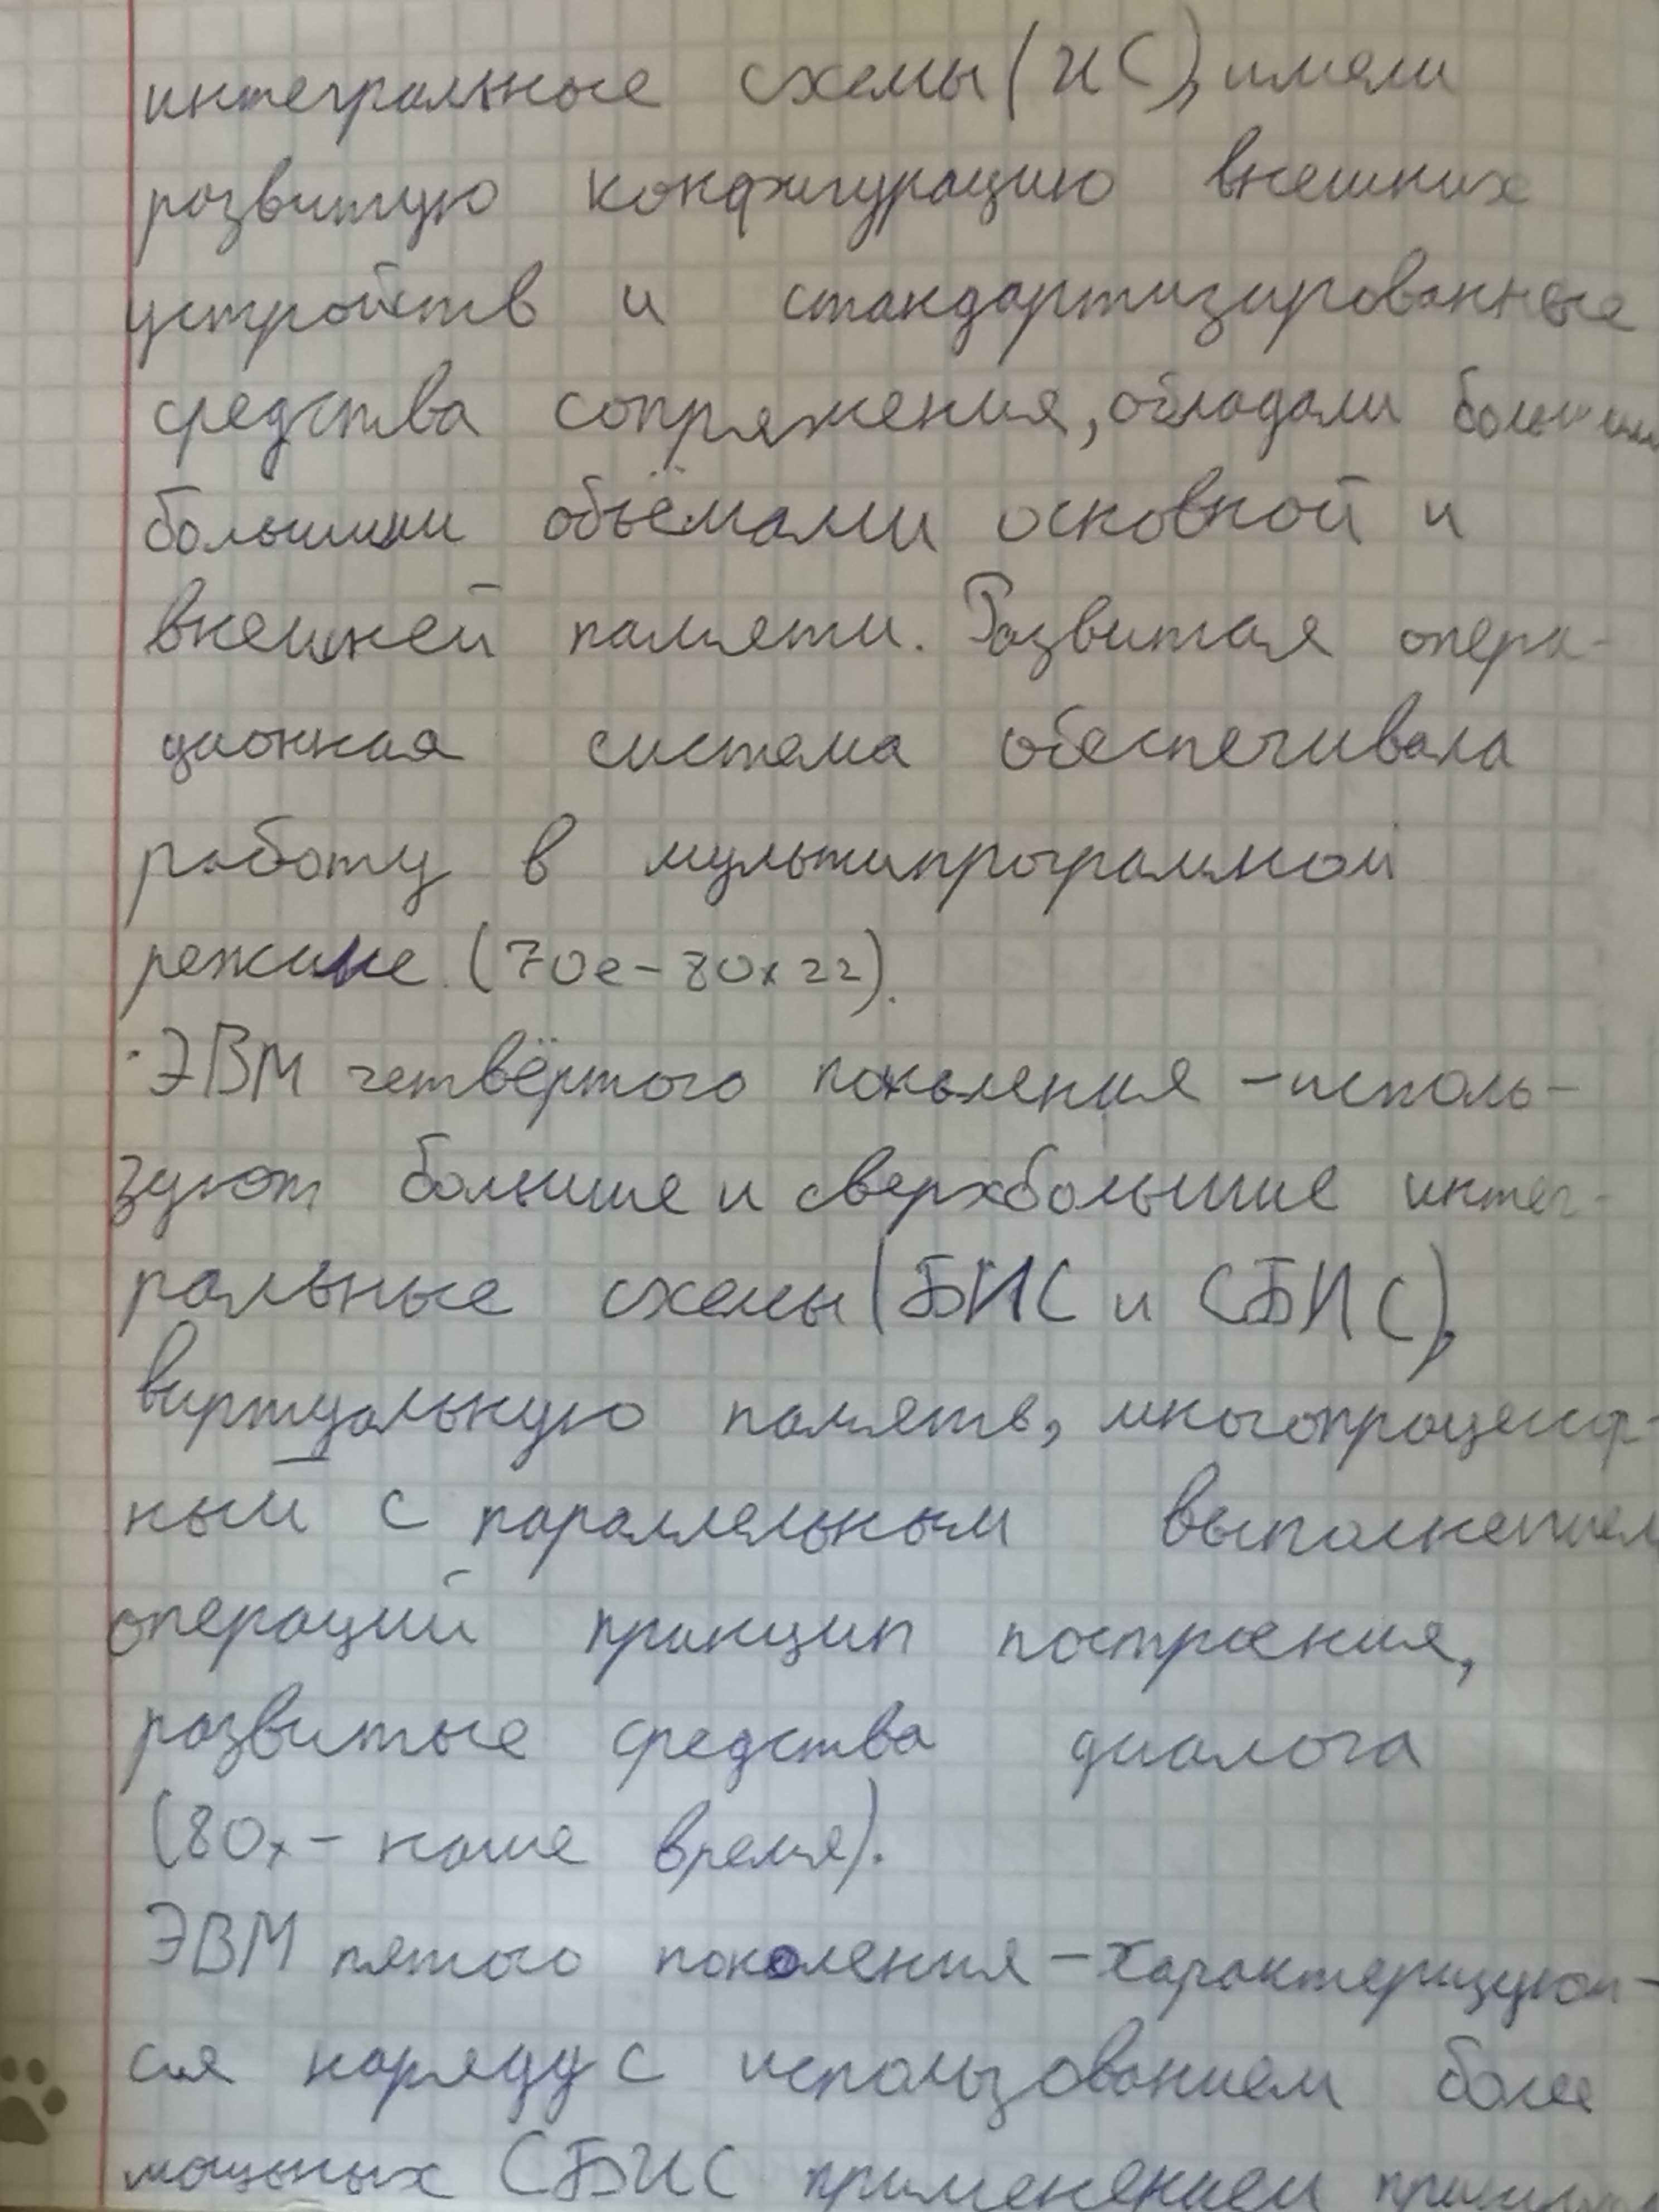 интегральные схемы (ИС), имели
развитую конфигурацию внешних
устройств и стандартизированные
средства сопряжения, обладали
большими объёмами основной и
внешней памяти. Развитая опера-
ционная система обеспечивала
работу в мультипрограмной
режиме. (70е-80х гг).
·ЭВМ четвёртого поколения - исполь-
зуют большие и сверхбольшие интег-
ральные схемы (БИС и СБИС),
виртуальную память, многопроцессор-
ный с параллельным выполнением
операций принцип построения,
развитые средства диалога
(80х - наше время).
ЭВМ пятого поколения - характеризуют-
ся наряду с использованием более
мощных СБИС применением